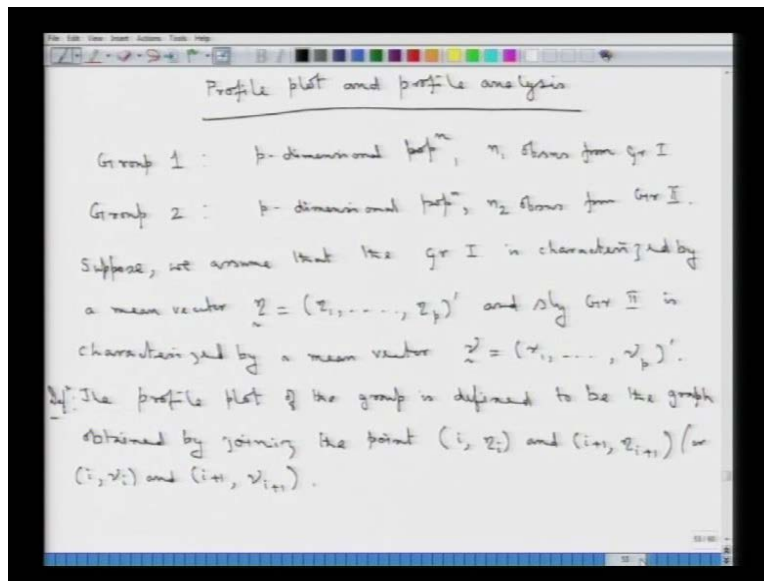 File Edit View Insert Actions Tools Help
Profile plot and profile analysis
Group 1 : p-dimensional popⁿ, n₁ obsns from gr I
Group 2 : p-dimensional popⁿ, n₂ obsns from Gr II.
Suppose, we assume that the gr I is characterized by
a mean vector η = (η₁, ...., ηₚ)' and sly Gr II is
characterized by a mean vector ν = (ν₁, ...., νₚ)'.
Defⁿ: The profile plot of the group is defined to be the graph
obtained by joining the point (i, ηᵢ) and (i+1, ηᵢ₊₁) (or
(i, νᵢ) and (i+1, νᵢ₊₁).
53/60
53